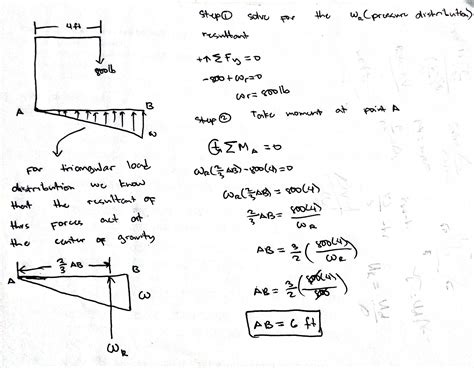 4ft
800lb
A
B
w
For triangular load
distribution we know
that the resultant of
this forces act at
the center of gravity
2/3 AB
A
B
ω
ω_R
Step① solve for the w_R (pressure distribution)
resultant
+↑ΣFy=0
-800+wr=0
wr=800lb
step② Take moment at point A
ΣM_A=0
ω_R(2/3 AB)-800(4)=0
ω_R(2/3 AB)=800(4)
2/3 AB = 800(4)/ω_R
AB = 3/2 (800(4)/ω_R)
AB = 3/2 (800(4)/800)
AB = 6 ft